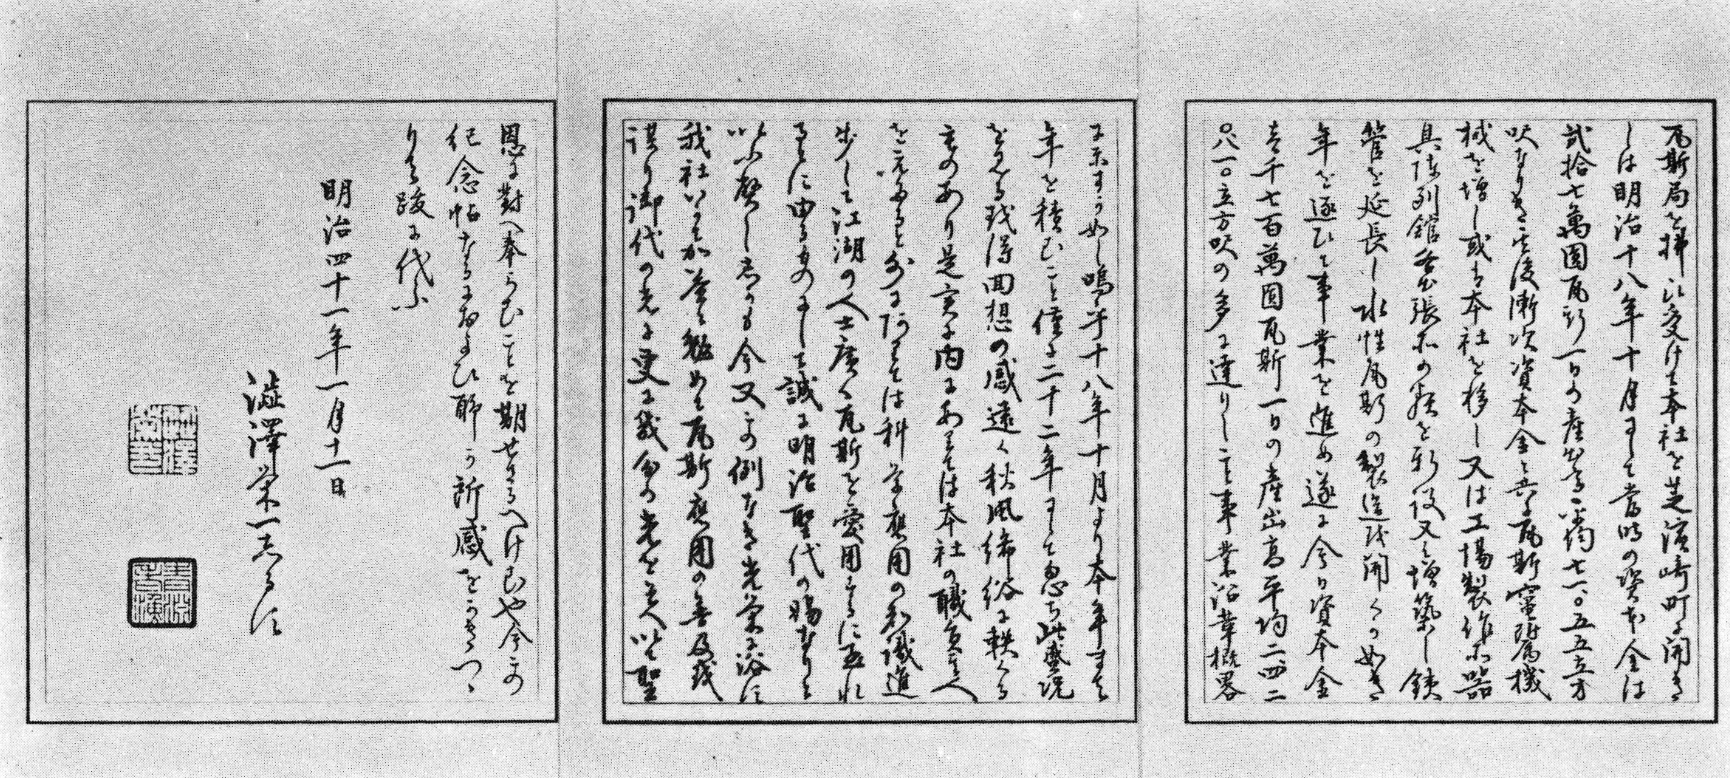 瓦斯局を拂ひ受けて本社を芝濱崎町に開き
しは明治十八年十月にして當時の資本金は
貳拾七萬圓瓦斯一日の産出高一萬七一〇五五立方
呎なりき其後漸次資本金と共に瓦斯竃附属機
械を増し或は本社を移し又は工場製作所器
具陳列舘出張所の類を新設又は増築し鉄
管を延長し水性瓦斯の製造を開くの如き
年を逐ひて事業を進め遂に今日資本金
壱千七百萬圓瓦斯一日の産出高平均二四二
只一〇立方呎の多に達りし事業沿革概畧
に示すか如し嗚乎十八年十月より本年まて
年を積むこと僅に二十二年にして忽ち此盛況
をみる我得回想の感遠く秋風綿綿に秩くる
ものあり是実に内にありては本社の職員
を外にありては科学應用の知識進
歩して江湖の人士廣く瓦斯を愛用するに至れ
るに由るものにして誠に明治聖代の賜なりと
以ふ然し而も今又この例なき光栄に浴す
我社いかてか益々勉めて瓦斯應用の普及
謀り御代の光に更に我会の光を添へ以て聖
恩に對へ奉らむことを期せさるへけむや今この
紀念帖なるにおよひ聊か所感をかきつゝ
りて跋に代ふ
明治四十一年一月十一日
澁澤栄一しるす